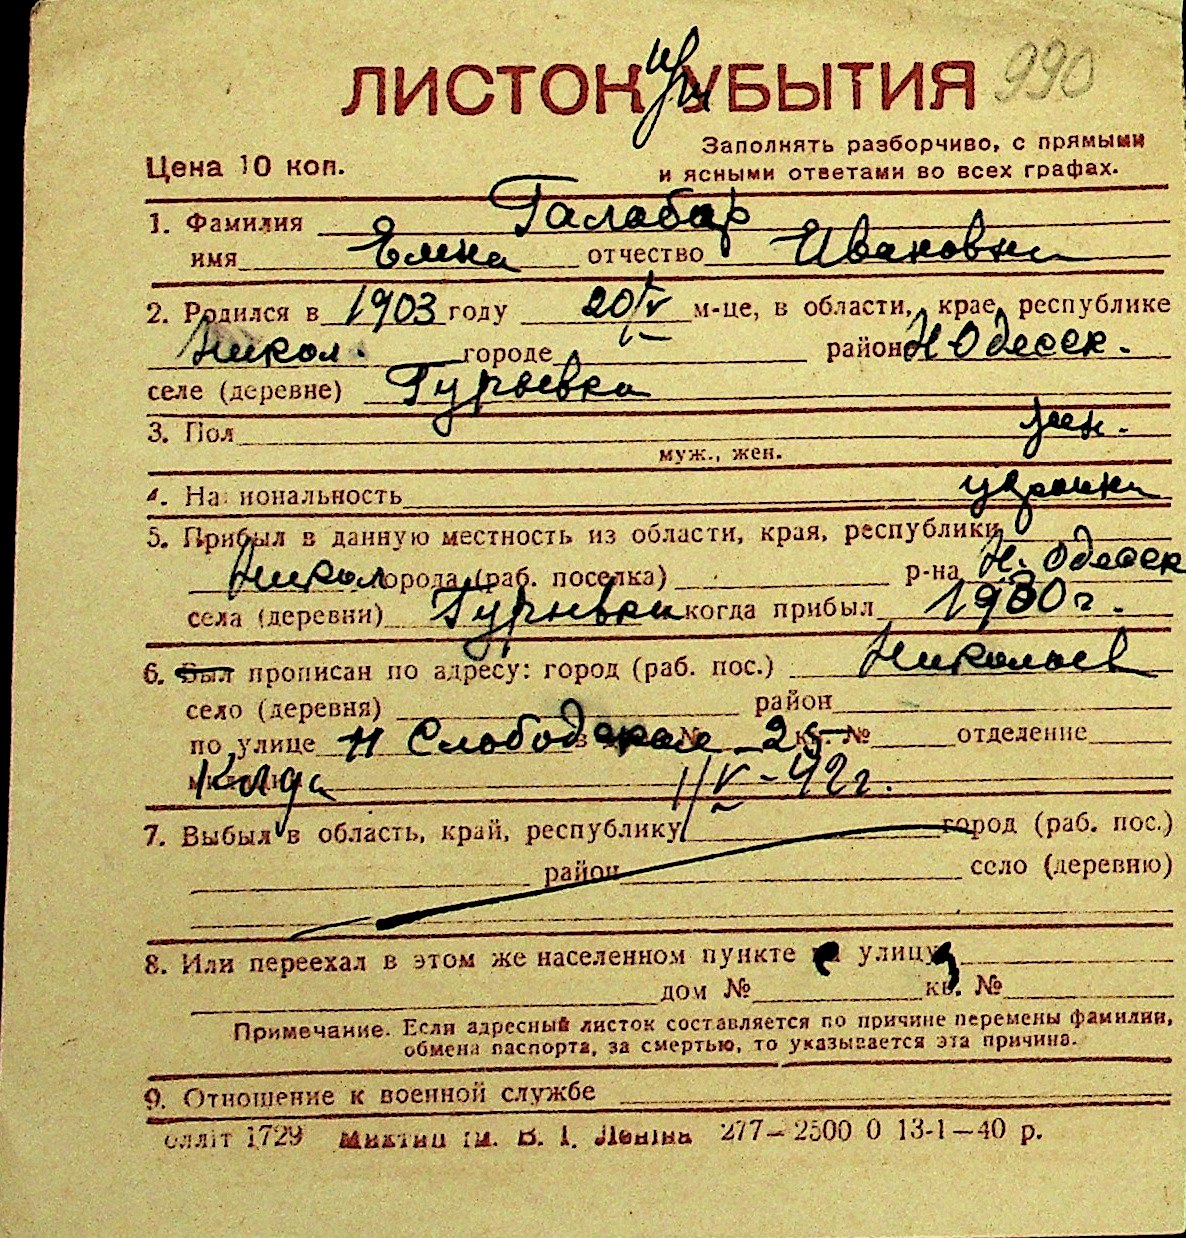 ЛИСТОК при УБЫТИЯ 990
Заполнять разборчиво, с прямыми
Цена 10 коп. и ясными ответами во всех графах.
1. Фамилия Галабар
имя Елена отчество Ивановна
2. Родился в 1903 году 20/IV м-це, в области, крае, республике
Никол. городе район Н Одесск.
селе (деревне) Гурьевка
3. Пол жен.
муж., жен.
4. На иональность украинка
5. Прибыл в данную местность из области, края, республики
Никол орода (раб. поселка) р-на Н. Одесск
села (деревни) Гурьевки когда прибыл 1930 г.
6. Был прописан по адресу: город (раб. пос.) Николаев
село (деревня) район
по улице Н Слободская 25 кв. № отделение
Когда 1/V-42 г.
7. Выбыл в область, край, республику город (раб. пос.)
район село (деревню)
8. Или переехал в этом же населенном пункте на улицу
дом № кв. №
Примечание. Если адресный листок составляется по причине перемены фамилии,
обмена паспорта, за смертью, то указывается эта причина.
9. Отношение к военной службе
1729 ім. В. І. Леніна 277—2500 0 13-1—40 р.